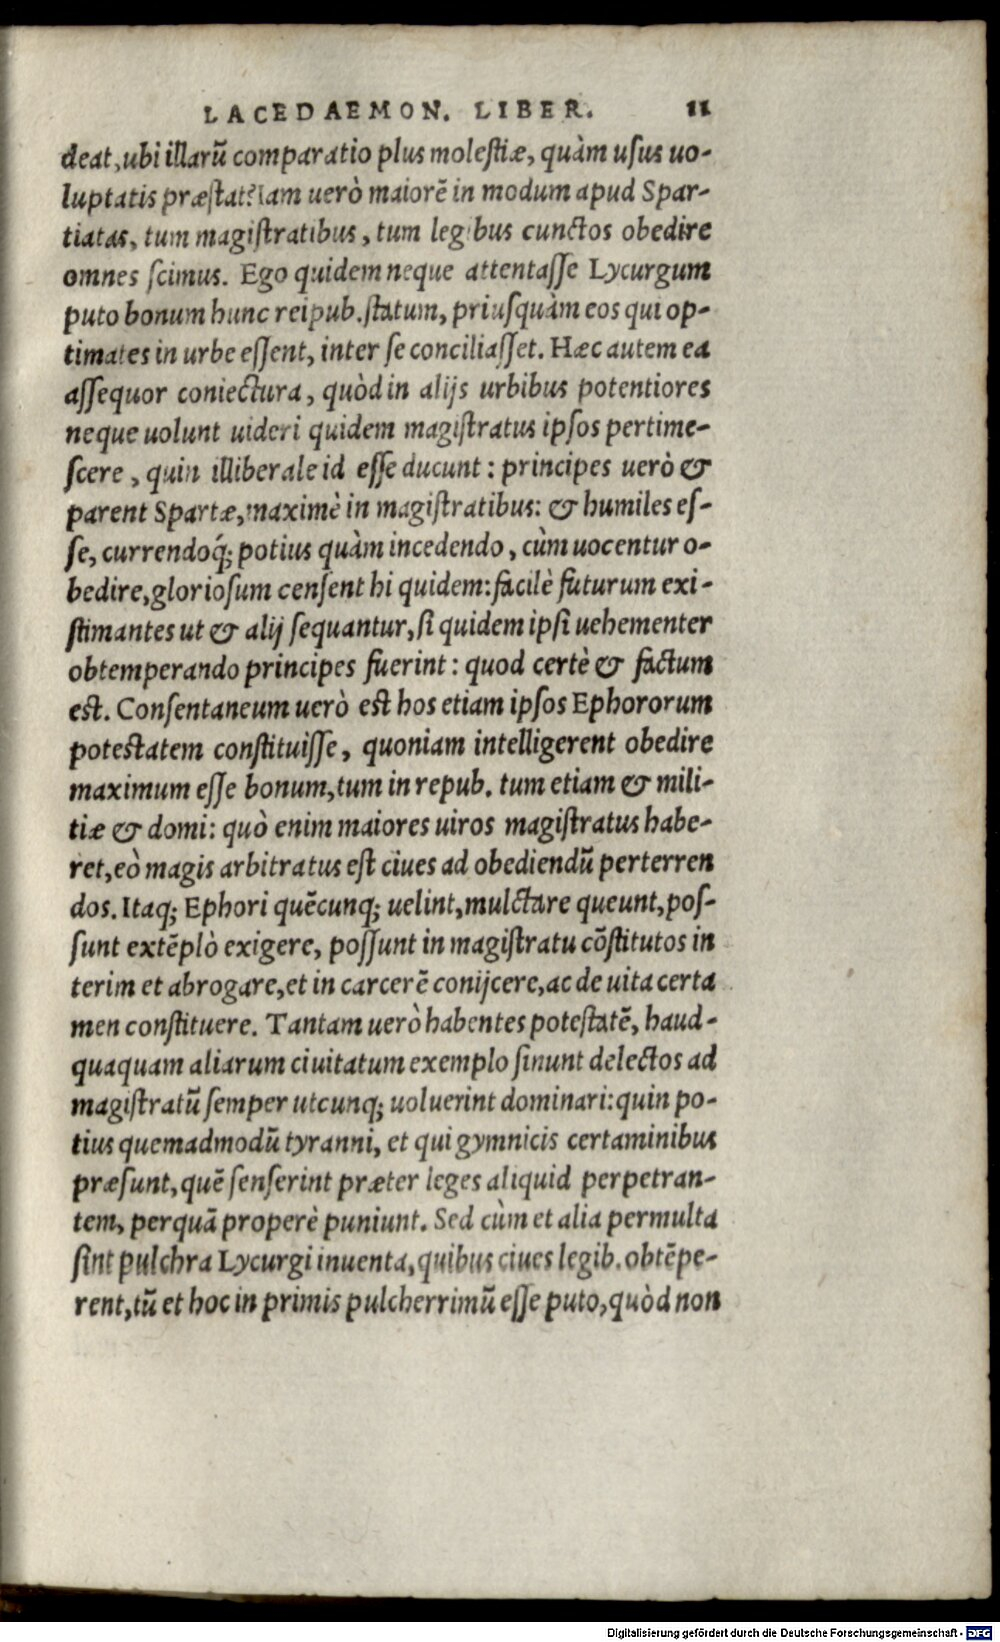 LACEDAEMON. LIBER. 11
deat, ubi illarũ comparatio plus molestiæ, quàm usus uo-
luptatis præstat? Iam uerò maiorẽ in modum apud Spar-
tiatas, tum magistratibus, tum legibus cunctos obedire
omnes scimus. Ego quidem neque attentasse Lycurgum
puto bonum hunc reipub. statum, priusquàm eos qui op-
timates in urbe essent, inter se conciliasset. Hæc autem ea
assequor coniectura, quòd in alijs urbibus potentiores
neque uolunt uideri quidem magistratus ipsos pertime-
scere, quin illiberale id esse ducunt: principes uerò &
parent Spartæ, maximè in magistratibus: & humiles es-
se, currendoq́; potius quàm incedendo, cùm uocentur o-
bedire, gloriosum censent hi quidem: facilè futurum exi-
stimantes ut & alij sequantur, si quidem ipsi uehementer
obtemperando principes fuerint: quod certè & factum
est. Consentaneum uerò est hos etiam ipsos Ephororum
potestatem constituisse, quoniam intelligerent obedire
maximum esse bonum, tum in repub. tum etiam & mili-
tiæ & domi: quò enim maiores uiros magistratus habe-
ret, eò magis arbitratus est ciues ad obediendũ perterren
dos. Itaq; Ephori quẽcunq; uelint, mulctare queunt, pos-
sunt extẽplò exigere, possunt in magistratu cõstitutos in
terim et abrogare, et in carcerẽ conijcere, ac de uita certa
men constituere. Tantam uerò habentes potestatẽ, haud-
quaquam aliarum ciuitatum exemplo sinunt delectos ad
magistratũ semper utcunq; uoluerint dominari: quin po-
tius quemadmodũ tyranni, et qui gymnicis certaminibus
præsunt, quẽ senserint præter leges aliquid perpetran-
tem, perquã properè puniunt. Sed cùm et alia permulta
sint pulchra Lycurgi inuenta, quibus ciues legib. obtẽpe-
rent, tũ et hoc in primis pulcherrimũ esse puto, quòd non
Digitalisierung gefördert durch die Deutsche Forschungsgemeinschaft - DFG